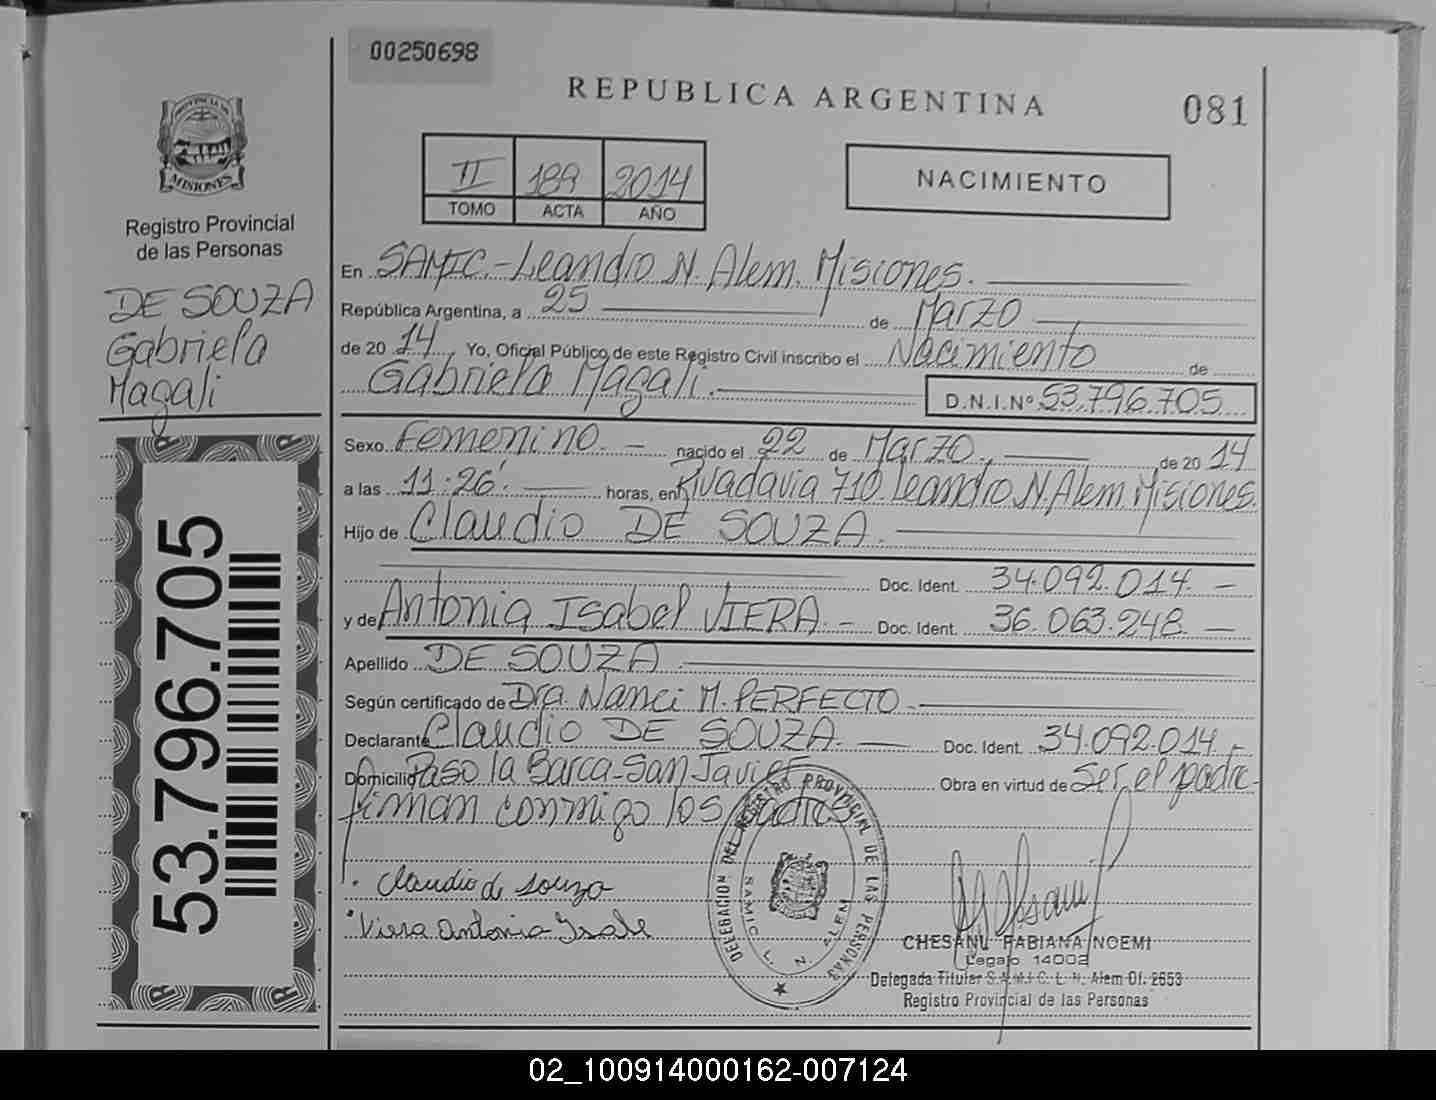 00250698
REPUBLICA ARGENTINA
081
PROVINCIA DE
MISIONES
Registro Provincial
de las Personas
DE SOUZA
Gabriela
Magali
53.796.705
II 189 2014
TOMO ACTA AÑO
NACIMIENTO
En SAMIC.-Leandro N. Alem. Misiones.
República Argentina, a 25 de Marzo
de 20 14 Yo, Oficial Público de este Registro Civil inscribo el Nacimiento de
Gabriela Magali. D.N.I.Nº 53.796.705
Sexo Femenino. - nacido el 22 de Marzo. de 20 14
a las 11:26' horas, en Rivadavia 710 Leandro N. Alem. Misiones.
Hijo de Claudio DE SOUZA.
Doc. Ident. 34.092.014. -
y de Antonia Isabel VIERA. - Doc. Ident. 36.063.248 -
Apellido DE SOUZA.
Según certificado de Dra. Nanci M. PERFECTO -
Declarante Claudio DE SOUZA. - Doc. Ident. 34.092.014 -
Domicilio Paso la Barca-San Javier Obra en virtud de Ser el padre-
firman conmigo los padres
Claudio de Souza
Viera Antonia Isabel
DELEGACION DEL REGISTRO PROVINCIAL DE LAS PERSONAS
SAMIC L. N. ALEM
CHESANI FABIANA NOEMI
Legajo 14002
Delegada Titular S.A.M.I.C. L. N. Alem Of. 2653
Registro Provincial de las Personas
02_100914000162-007124